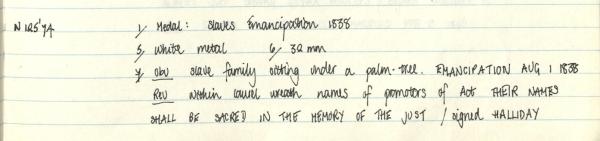 N 125'74 1/ Medal: Slaves Emancipation 1838
5/ White metal 6/ 32 mm
7/ Obv slave family sitting under a palm-tree. EMANCIPATION AUG 1 1838
Rev Within laurel wreath names of promotors of Act THEIR NAMES
SHALL BE SACRED IN THE MEMORY OF THE JUST / signed HALLIDAY